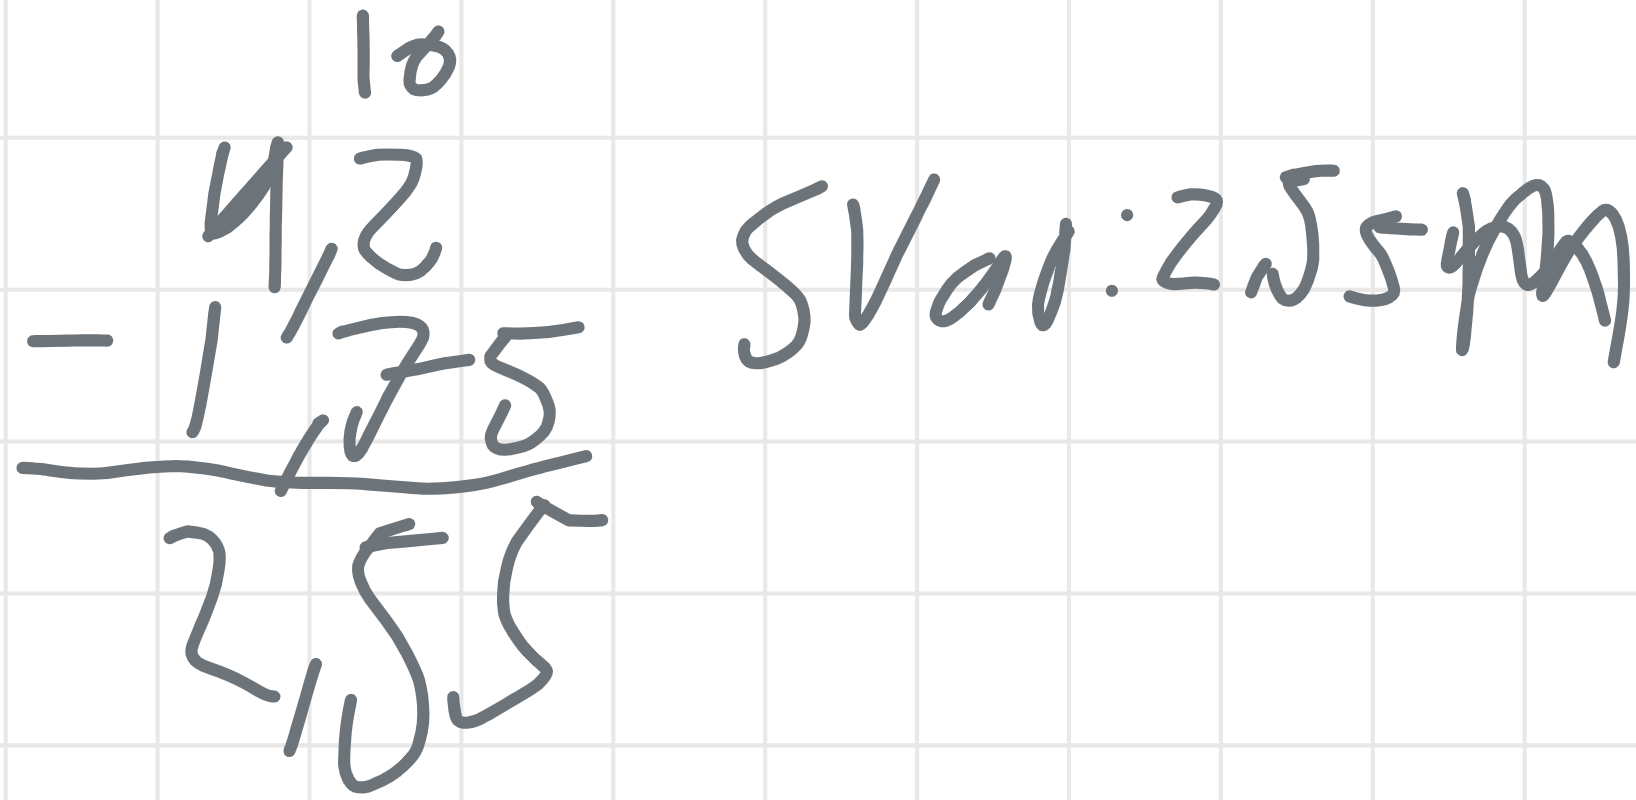 10
4,2
- 1,75
2,55
SVar: 2,55 ton